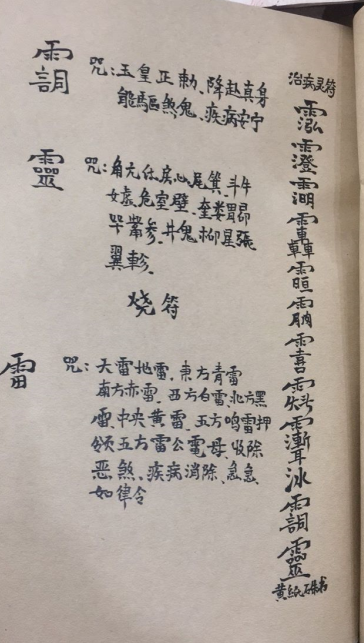 治病灵符
靈
黄纸硃书
咒:玉皇正勅、降赴真身
能驅煞鬼、疾病安宁
靈
咒:角亢氐房心尾箕斗牛
女虚危室壁、奎娄胃昴
毕觜参、井鬼柳星張
翼軫、
烧符
雷
咒:天雷地雷、東方青雷
南方赤雷、西方白雷、北方黑
雷、中央黄雷、五方鸣雷押
领五方雷公電母、收除
恶煞、疾病消除、急急
如律令